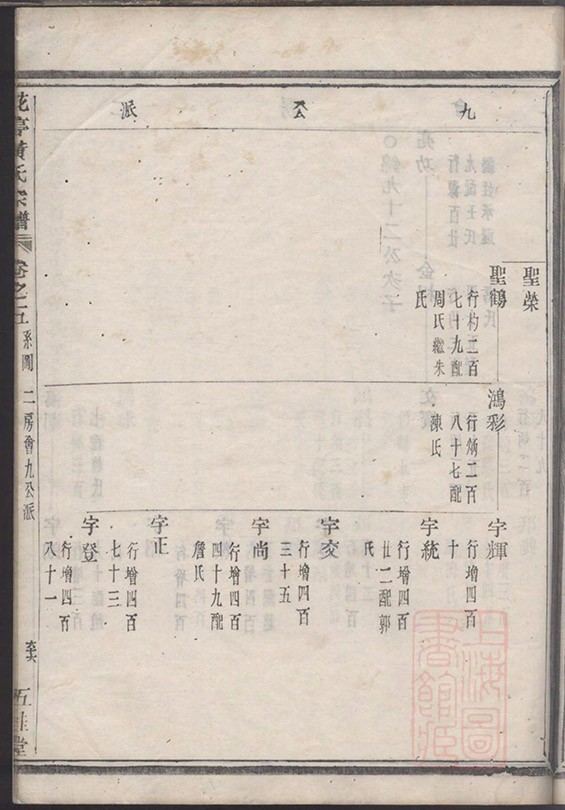 九
公
派
聖榮
聖鶴
行杓二百
七十九配
周氏繼朱
氏
鴻彩
行炳二百
八十七配
陳氏
字輝
行增四百
十
字統
行增四百
廿二配郭
氏
字交
行增四百
三十五
字尚
行增四百
四十九配
詹氏
字正
行增四百
七十三
字登
行增四百
八十一
花亭黃氏宗譜
卷之五
系圖
二房會九公派
五桂堂
上海圖
書館藏